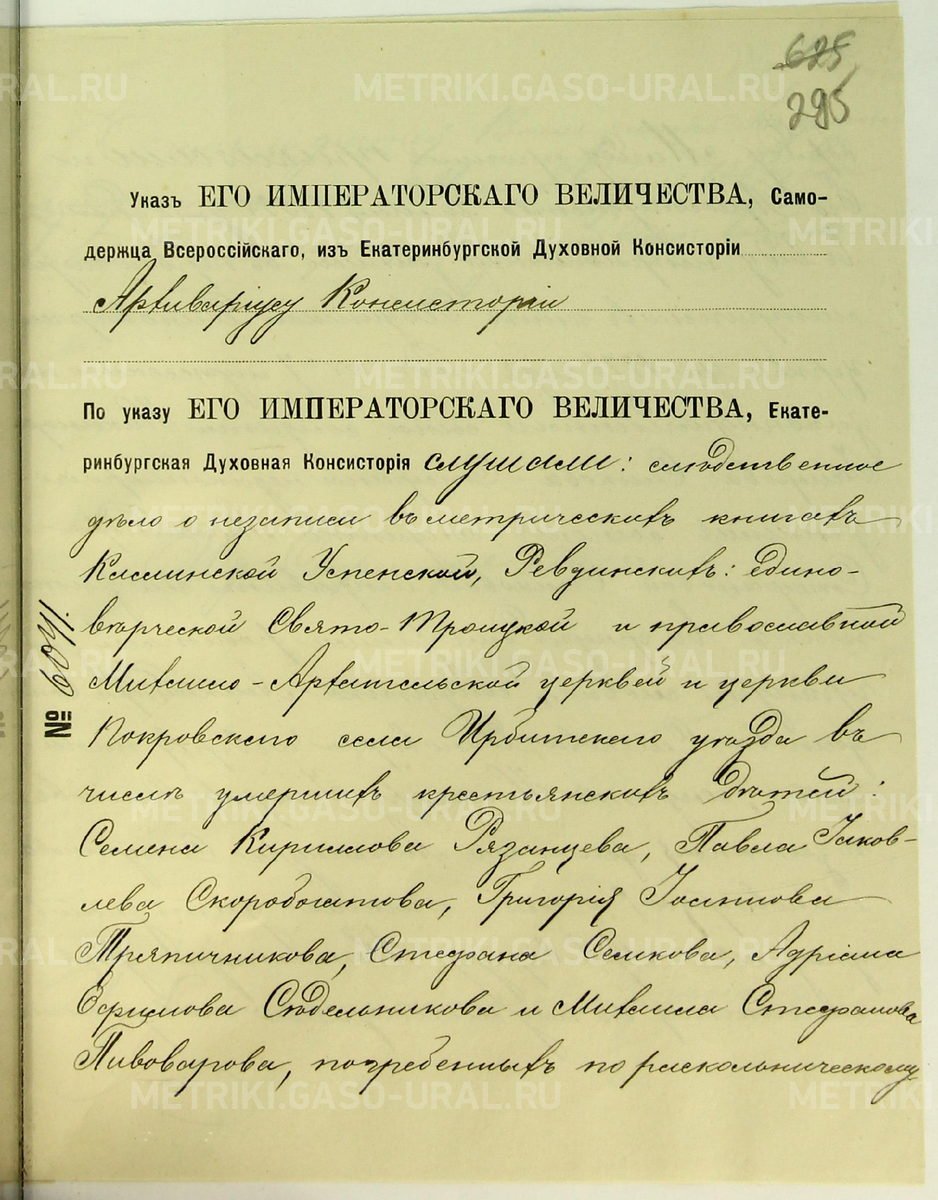 625
295
Указъ ЕГО ИМПЕРАТОРСКАГО ВЕЛИЧЕСТВА, Само-
держца Всероссійскаго, изъ Екатеринбургской Духовной Консисторіи
Архиваріусу Консисторіи
По указу ЕГО ИМПЕРАТОРСКАГО ВЕЛИЧЕСТВА, Екате-
ринбургская Духовная Консисторія слушали: слѣдственное
дѣло о незаписи въ метрическихъ книгахъ
Каслинской Успенской, Ревдинскихъ: едино-
вѣрческой Свято-Троицкой и православной
Михаило-Архангельской церквей и церкви
Покровскаго села Ирбитскаго уѣзда въ
числѣ умершихъ крестьянскихъ дѣтей:
Семена Кириллова Рязанцева, Павла Іаков-
лева Скоробогатова, Григорія
Тряпичникова, Стефана Селкова, Адріана
Ефимова Сѣдельникова и Михаила Стефанова
Пивоварова, погребенныхъ по раскольническому
№ 6041.
METRIKI.GASO-URAL.RU